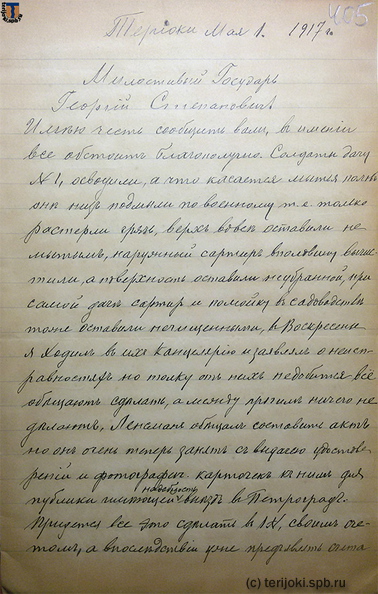 405
Терiоки Мая 1. 1917 г.
Милостивый Государь
Георгiй Степановичъ
Имѣю честь сообщить вамъ, въ имѣнiи
все обстоитъ благополучно. Солдаты дачу
№1, освободили, а что касается мытья половъ
они низъ подмыли по военному т.е. только
растерли грязь, верхъ вовсе оставили не
мытымъ, наружный сартиръ вполовину вычис
тили, а поверхность оставили неубранной, при
самой дачѣ сартир и помойку въ садоводствѣ
тоже оставили неочищенными, въ Воскресенiе
я ходилъ въ ихъ Канцелярiю и заявлялъ о неисп
равностяхъ но толку отъ нихъ недобится всё
обѣщаютъ сдѣлать, а между прочимъ ничего не
дѣлаютъ, Ленсманъ обѣщалъ составить актъ
но онъ очень теперь занятъ съ выдачею удостов
ренiй и фотографич. карточекъ къ нимъ для
публики имѣющей надобность въѣзда въ Петроградъ.
Придется все это сдѣлать въ IX, своимъ сче
томъ, а впослѣдствiи уже предъявлять счета
(c) terijoki.spb.ru